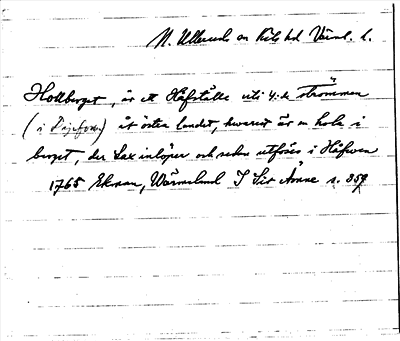 N. Ullerud sn Kils hd Värml. l.
Hollberget, är ett Håfställe uti 4:de strömmen
(i Dejefors) åt östra landet, hwarest är en hola i
berget, der Lax inlöper och sedan utföses i Håfwen
1765 Ekman, Wärmeland I Sis Ämne s. 359